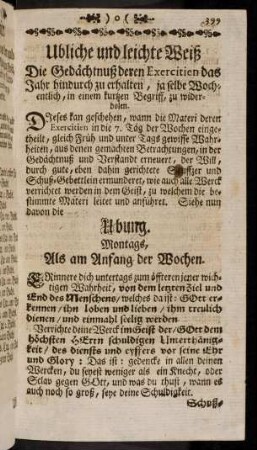 )o(
399
Ubliche und leichte Weiß
Die Gedächtnuß deren Exercitien das
Jahr hindurch zu erhalten, ja selbe Woch-
entlich, in einem kurtzen Begriff, zu wider-
holen.
DJeses kan geschehen, wann die Materi deren
Exercitien in die 7. Täg der Wochen einge-
theilt, gleich Früh und unter Tags gewisse Wahr-
heiten, aus denen gemachten Betrachtungen, in der
Gedächtnuß und Verstandt erneuert, der Will,
durch gute, eben dahin gerichtete Seuffzer und
Schuß-Gebettlein ermunderet, wie auch alle Werck
verrichtet werden in dem Geist, zu welchem die be-
stimmte Materi leitet und anführet. Siehe nun
davon die
Ubung.
Montags,
Als am Anfang der Wochen.
ERinnere dich untertags zum öffteren jener wich-
tigen Wahrheit, von dem letzten Ziel und
End des Menschens, welches da ist: GOtt er-
kennen, ihn loben und lieben, ihm treulich
dienen, und einmahl seelig werden.
Verrichte deine Werck im Geist der, GOtt dem
höchsten HErrn schuldigen Unterthänig-
keit, des diensts und eyffers vor seine Ehr
und Glory: Das ist: gedencke in allen deinen
Wercken, du seyest weniger als ein Knecht, oder
Sclav gegen GOtt, und was du thust, wann es
auch noch so groß, seye deine Schuldigkeit.
Schuß-